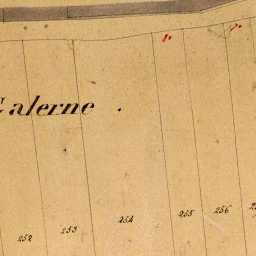 Galerne .
252 253 254 255 256